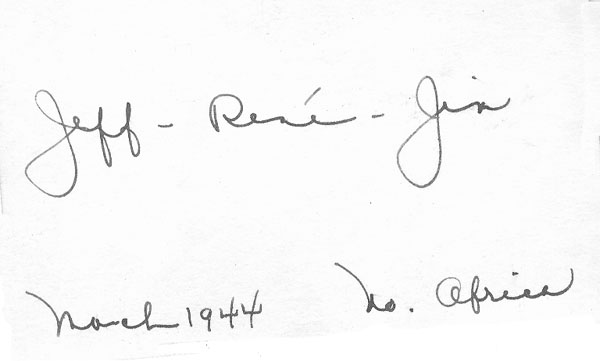 Jeff - René - Jim
March 1944 No. Africa